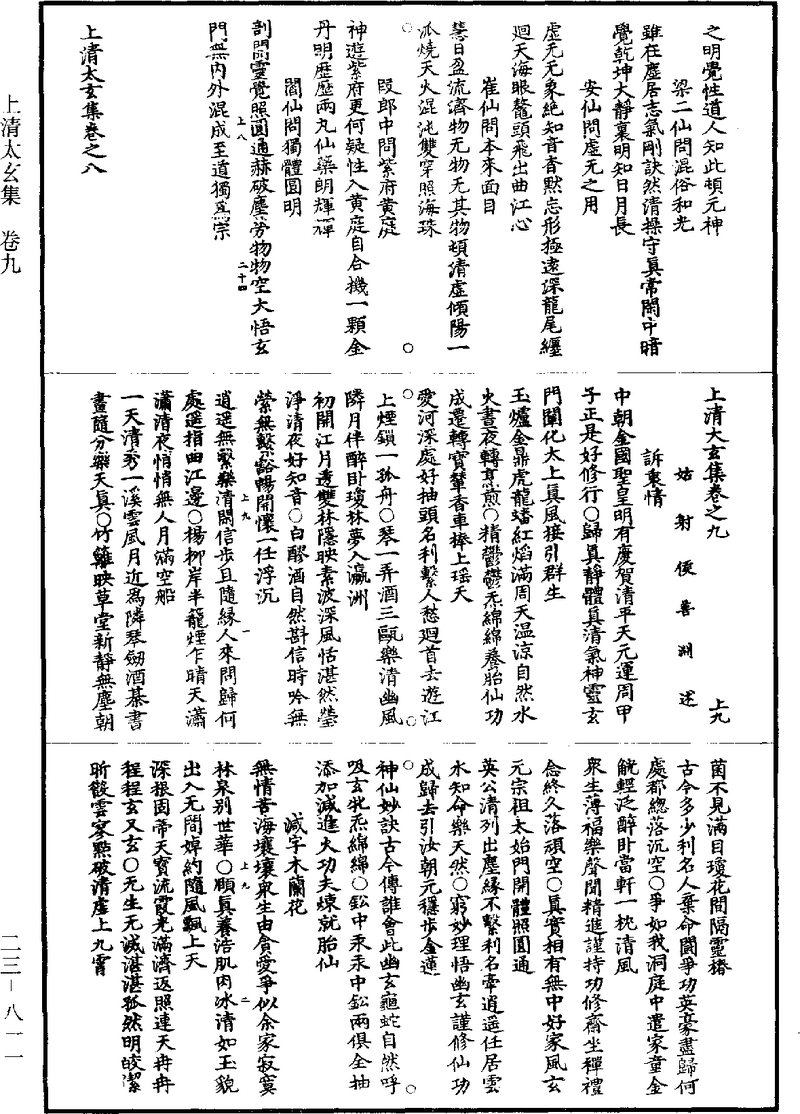 之明覺性道人知此頓元神
梁二仙問混俗和光
雖在塵居志氣剛訣然清操守真常鬧中暗
覺乾坤大靜裏明知日月長
安仙問虛无之用
虛无无象絕知音杳默忘形極遠深龍尾纏
迴天海眼鼇頭飛出曲江心
崔仙問本來面目
慧日盈流濟物无物无其物頓清虛傾陽一
派燒天火混沌雙穿照海珠
段郎中問紫府黃庭
神遊紫府更何疑性入黃庭自合機一顆金
丹明歷歷兩丸仙藥朗輝輝
閻仙問獨體圓明
剖開靈覺照圓通赫破塵勞物物空大悟玄
門無內外混成至道獨為宗
上清太玄集卷之八
上八
二十四
上清太玄集卷之九
上九
姑射侯善淵述
訴衷情
中朝金國聖皇明有慶賀清平天元運周甲
子正是好修行○歸真靜體真清氣神靈玄
門闡化太上真風接引群生
玉爐金鼎虎龍蟠紅焰滿周天温涼自然水
火晝夜轉烹煎○精鬱鬱炁綿綿養胎仙功
成遷轉寶輦香車捧上瑤天
愛河深處好抽頭名利繫人愁迴首去遊江
上煙鎖一孤舟○琴一弄酒三甌樂清幽風
隣月伴醉卧瓊林夢入瀛洲
初開江片透雙林隱映素波深風恬湛然瑩
淨清夜好知音○白醪酒自然斟信時吟無
縈無繫豁暢開懷一任浮沉
逍遥無繫樂清閑信步且隨緣人來問歸何
處遥指曲江邊○楊柳岸半籠煙乍晴天瀟
瀟清夜悄悄無人月滿空船
一天清秀一溪雲風月近為隣琴劒酒棊書
畫隨分樂天真○竹籬映草堂新靜無塵朝
上九
一
菌不見滿目瓊花問隔靈椿
古今多少利名人棄命闘爭功英豪盡歸何
處都緫落沉空○爭如我洞庭中遣家童金
觥輕泛醉卧當軒一枕清風
衆生薄福樂聲聞精進謹持功修齋坐禪禮
念終久落頑空○真實相有無中好家風玄
元宗祖太始門開體照圓通
英公清列出塵緣不繫利名牽逍遥任居雲
水知命樂天然○窮妙理悟幽玄謹修仙功
成歸去引汝朝元穩步金蓮
神仙妙訣古今傳誰會此幽玄龜蛇自然呼
吸玄牝炁綿綿○鈆中汞汞中鈆兩俱全抽
添加減進火功夫煉就胎仙
減字木蘭花
無情苦海壤壤衆生由貪愛爭似余家寂寞
林泉別世華○頤真養浩肌肉冰清如玉貌
出入无間婥約隨風飄上天
深根固帝天寳流霞光滿濟返照連天冉冉
程程玄又玄○无生无滅湛湛孤然明皎潔
昕毂雲家點破清虛上九霄
上九
二
上清太玄集　卷九
二三－八一一